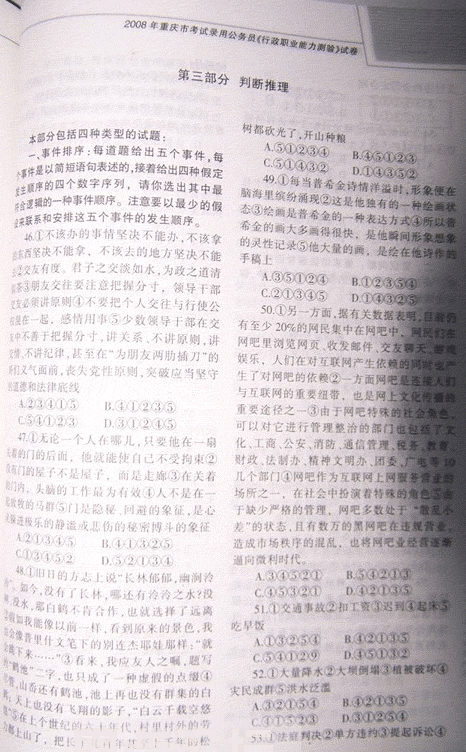 2008年重庆市考试录用公务员《行政职业能力测验》试卷
第三部分 判断推理
本部分包括四种类型的试题：
一、事件排序：每道题给出五个事件，每
个事件是以简短语句表述的，接着给出四种假定
发生顺序的四个数字序列，请你选出其中最
符合逻辑的一种事件顺序。注意要以最少的假
设来联系和安排这五个事件的发生顺序。
46.①不该办的事情坚决不能办，不该拿
的东西坚决不能拿，不该去的地方坚决不能
去②交友有度。君子之交淡如水，为政之道清
③朋友交往要注意把握分寸，领导干部
交友必须讲原则④不要把个人交往与行使公
混在一起，感情用事⑤少数领导干部在交
往中不善于把握分寸，讲关系、不讲原则，讲
友情、不讲纪律，甚至在“为朋友两肋插刀”的
义气面前，丧失党性原则，突破应当坚守
的道德和法律底线
A.②③④①⑤ B.④①②③⑤
C.⑤④①②③ D.③①②④⑤
47.①无论一个人在哪儿，只要他在一扇
关着的门的后面，他就能使自己不受拘束②
没有门的屋子不是屋子，而是走廊③在关着
的门内，头脑的工作最为有效④人不是在一
起放牧的马群⑤门是隐秘、回避的象征，是心
灵躲进极乐的静谧或悲伤的秘密搏斗的象征
A.②①③④⑤ B.④①③②⑤
C.①③④⑤② D.⑤②①③④
48.①旧日的方志上说“长林郁郁，幽涧泠
泠”。如今，没有了长林，哪还有泠泠之水？没
水，那白鹤不肯合作，也就选择了远离
②假如我能像以前一样，看到原来的景色，我
会像普里什文笔下的别连杰耶娃那样：“就
跪下来……”③看来，我应友人之嘱，题写
“鹤池”二字，也只成了一种虚假的点缀④
山岙还有鹤池，池上再也没有群集的白
鹤，天上也没有飞翔的影子，“白云千载空悠
悠”⑤在上个世纪的六十年代，村里村外的劳
力都上山了，把长了几百年甚至上千年的松
树都砍光了，开山种粮
A.⑤①②③④ B.④⑤①②③
C.⑤①④③② D.①④③⑤②
49.①每当普希金诗情洋溢时，形象便在
脑海里缤纷涌现②这是他独有的一种绘画状
态③绘画是普希金的一种表达方式④所以普
希金的画大多画得很快，是他瞬间形象想象
的灵性记录⑤他大量的画，是绘在他诗作的
手稿上
A.③⑤①②④ B.①②③⑤④
C.②①③④⑤ D.①④③②⑤
50.①另一方面，据有关数据表明，目前约
有至少20%的网民集中在网吧中，网民们在
网吧里浏览网页、收发邮件、交友聊天、游戏
娱乐，人们在对互联网产生依赖的同时也产
生了对网吧的依赖②一方面网吧是连接人们
与互联网的重要纽带，也是网上文化传播的
重要途径之一③由于网吧特殊的社会角色，
可以对它进行管理整治的部门也包括了文
化、工商、公安、消防、通信管理、税务、教育、
财政、法制办、精神文明办、团委、广电等10
几个部门④网吧作为互联网上网服务营业的
场所之一，在社会中扮演着特殊的角色⑤由
于缺少严格的管理，网吧多数处于“散乱小
差”的状态，且有数万的黑网吧在违规营业，
造成市场秩序的混乱，也将网吧业经营逐渐
逼向微利时代。
A.③④⑤②① B.⑤④②①③
C.④⑤③②① D.④②①③⑤
51.①交通事故②扣工资③迟到④起床⑤
吃早饭
A.①③②⑤④ B.④⑤①③②
C.⑤④①②③ D.④③①②⑤
52.①大量降水②大坝倒塌③植被破坏④
灾民成群⑤洪水泛滥
A.③①②⑤④ B.④②①③⑤
C.③①⑤②④ D.③①②⑤④
53.①法庭判决②单方违约③提起诉讼④